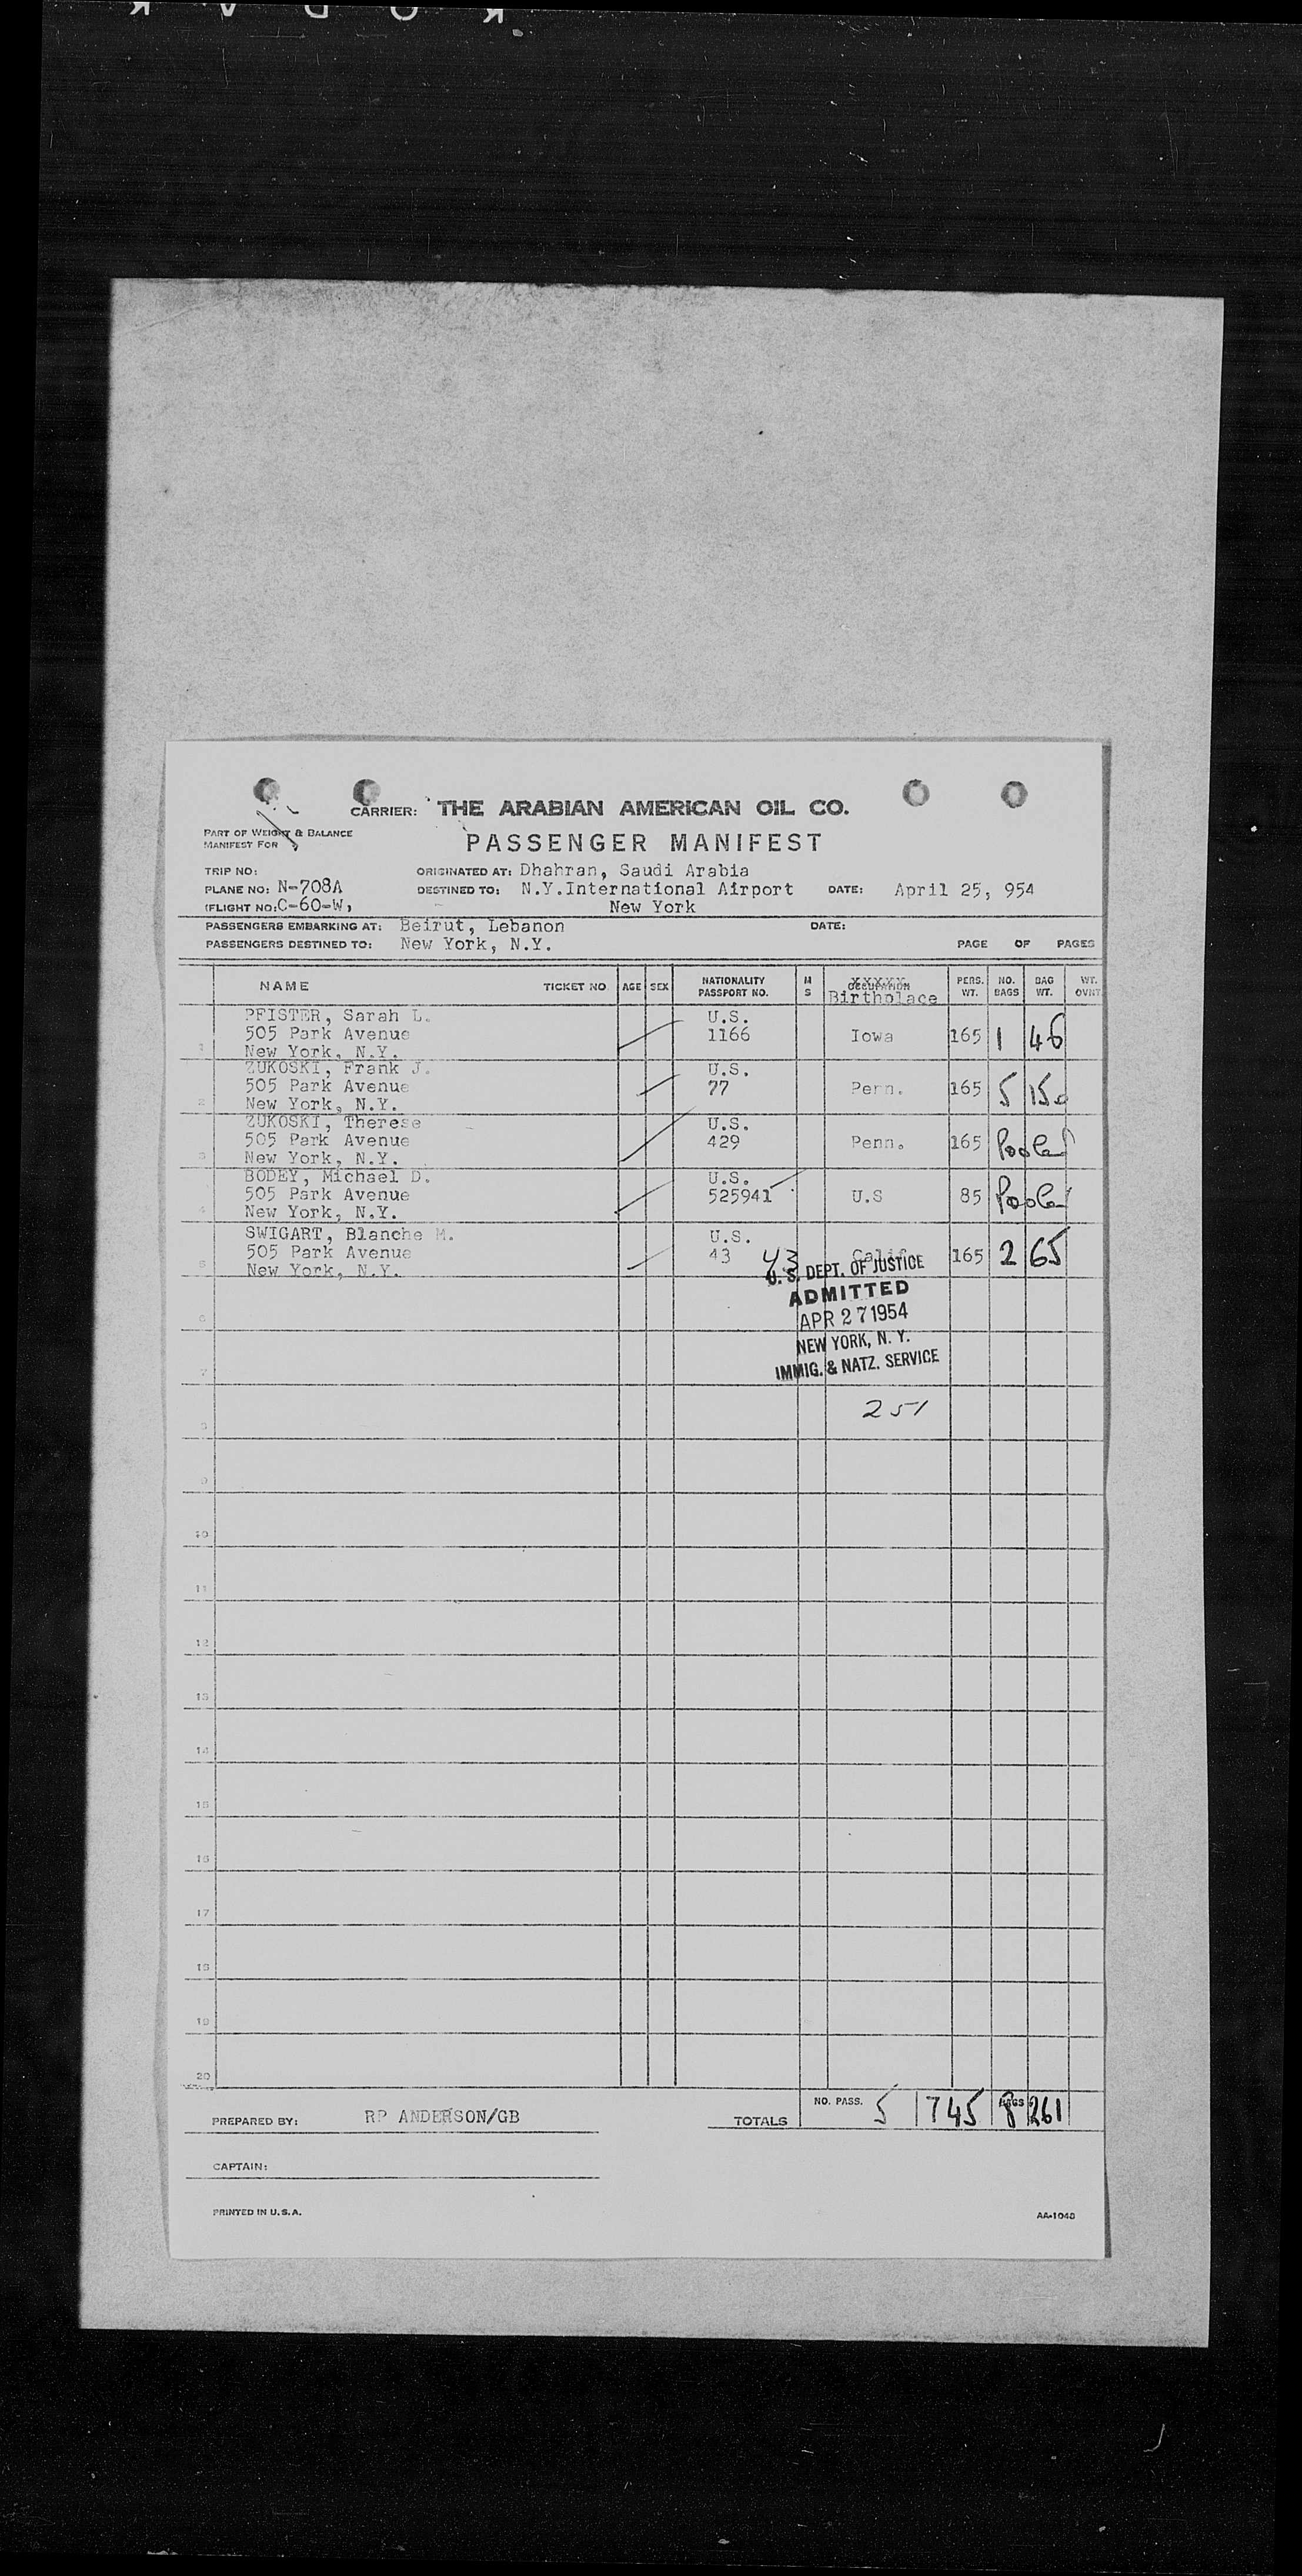 KODAK
CARRIER: THE ARABIAN AMERICAN OIL CO.
PART OF WEIGHT & BALANCE
MANIFEST FOR
PASSENGER MANIFEST
TRIP NO:
ORIGINATED AT: Dhahran, Saudi Arabia
PLANE NO: N-708A
DESTINED TO: N.Y.International Airport DATE: April 25, 954
(FLIGHT NO:C-60-W)
New York
PASSENGERS EMBARKING AT: Beirut, Lebanon DATE:
PASSENGERS DESTINED TO: New York, N.Y. PAGE OF PAGES
NAME TICKET NO. AGE SEX NATIONALITY PASSPORT NO. M S OCCUPATION Birthplace PERS. WT. NO. BAGS BAG WT. WT. OVNT
PFISTER, Sarah L. U.S.
505 Park Avenue 1166 Iowa 165 1 46
1 New York, N.Y.
ZUKOSKI, Frank J. U.S.
505 Park Avenue 77 Penn. 165 5 150
2 New York, N.Y.
ZUKOSKI, Therese U.S.
505 Park Avenue 429 Penn. 165 Pooled
3 New York, N.Y.
BODEY, Michael D. U.S.
505 Park Avenue 525941 U.S 85 Pooled
4 New York, N.Y.
SWIGART, Blanche M. U.S.
505 Park Avenue 43 43 Calif. 165 2 65
5 New York, N.Y.
U. S. DEPT. OF JUSTICE
ADMITTED
6 APR 27 1954
NEW YORK, N. Y.
IMMIG. & NATZ. SERVICE
7
251
8
9
10
11
12
13
14
15
16
17
18
19
20
PREPARED BY: RP ANDERSON/GB TOTALS NO. PASS. 5 745 BAGS 8 261
CAPTAIN:
PRINTED IN U.S.A. AA-1048